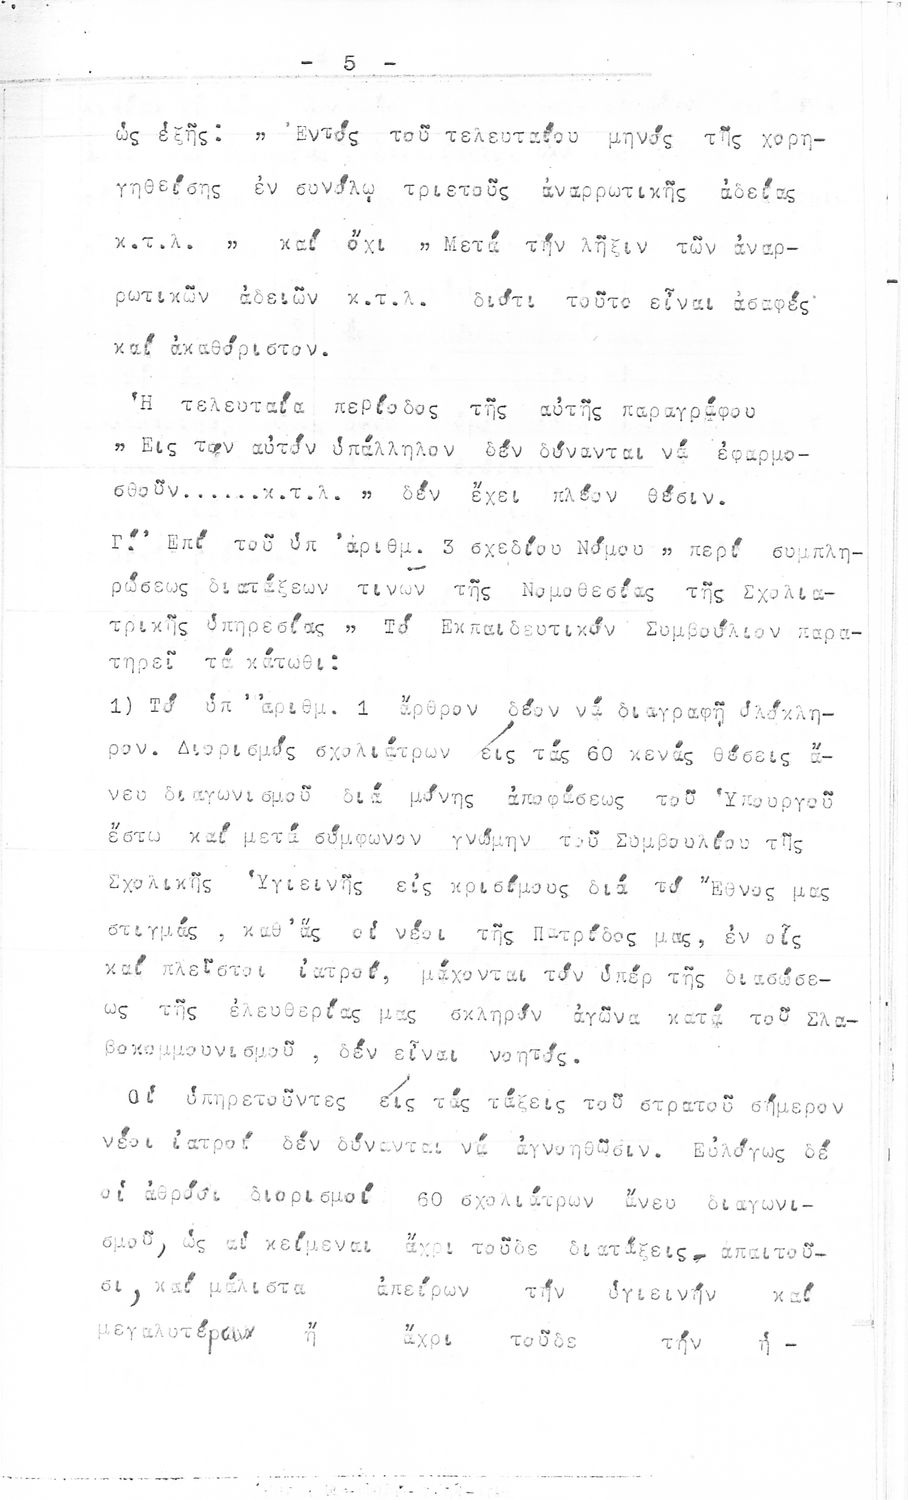 - 5 -
ὡς ἑξῆς: „ Ἐντός τοῦ τελευταίου μηνός τῆς χορη-
γηθείσης ἐν συνόλῳ τριετοῦς ἀναρρωτικῆς ἀδείας
κ.τ.λ. „ καί ὄχι „ Μετά τήν λῆξιν τῶν ἀναρ-
ρωτικῶν ἀδειῶν κ.τ.λ. διότι τοῦτο εἶναι ἀσαφές
καί ἀκαθόριστον.
Ἡ τελευταία περίοδος τῆς αὐτῆς παραγράφου
„ Εις τον αὐτόν ὑπάλληλον δέν δύνανται νά ἐφαρμο-
σθοῦν......κ.τ.λ. „ δέν ἔχει πλέον θέσιν.
Γ.΄ Ἐπί τοῦ ὑπ ἀριθμ. 3 σχεδίου Νόμου „ περί συμπλη-
ρώσεως διατάξεων τινων τῆς Νομοθεσίας τῆς Σχολια-
τρικῆς ὑπηρεσίας „ Τό Εκπαιδευτικόν Συμβούλιον παρα-
τηρεῖ τά κάτωθι:
1) Τό ὑπ ' ἀριθμ. 1 ἄρθρον δέον νά διαγραφῇ ὁλόκλη-
ρον. Διορισμός σχολιάτρων εἰς τάς 60 κενάς θέσεις ἄ-
νευ διαγωνισμοῦ διά μόνης ἀποφάσεως τοῦ Ὑπουργοῦ
ἔστω καί μετά σύμφωνον γνώμην τοῦ Συμβουλίου τῆς
Σχολικῆς Ὑγιεινῆς εἰς κρισίμους διά τό Ἔθνος μας
στιγμάς , καθ'ἅς οἱ νέοι τῆς Πατρίδος μας, ἐν οἷς
καί πλεῖστοι ἰατροί, μάχονται τόν ὑπέρ τῆς διασώσε-
ως τῆς ἐλευθερίας μας σκληρόν ἀγῶνα κατά τοῦ Σλα-
βοκομμουνισμοῦ , δέν εἶναι νοητός.
Οἱ ὑπηρετοῦντες εἰς τάς τάξεις τοῦ στρατοῦ σήμερον
νέοι ἰατροί δέν δύνανται νά ἀγνοηθῶσιν. Εὐλόγως δέ
οἱ ἀθρόοι διορισμοί 60 σχολιάτρων ἄνευ διαγωνι-
σμοῦ, ὡς αἱ κείμεναι ἄχρι τοῦδε διατάξεις, απαιτοῦ-
σι, καί μάλιστα ἀπείρων τήν ὑγιεινήν καί
μεγαλυτέρων ἤ ἄχρι τοῦδε τήν ἡ -